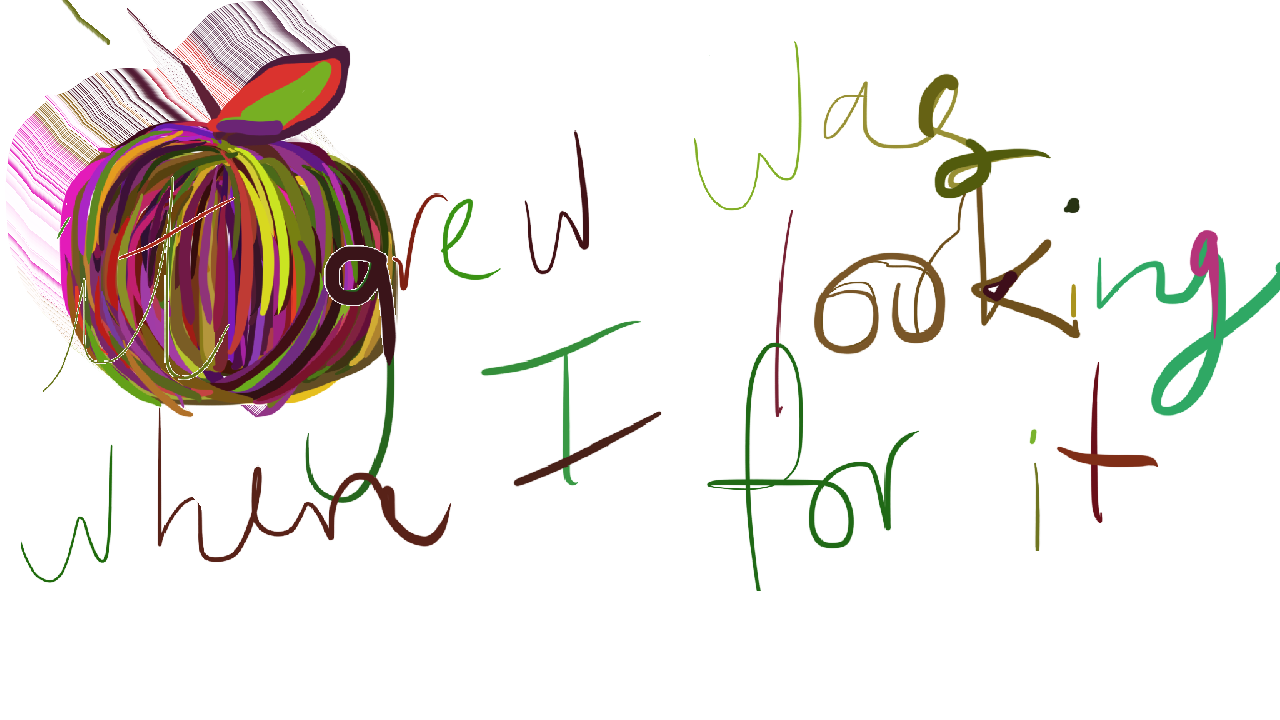 it grew
when I
was
looking
for it